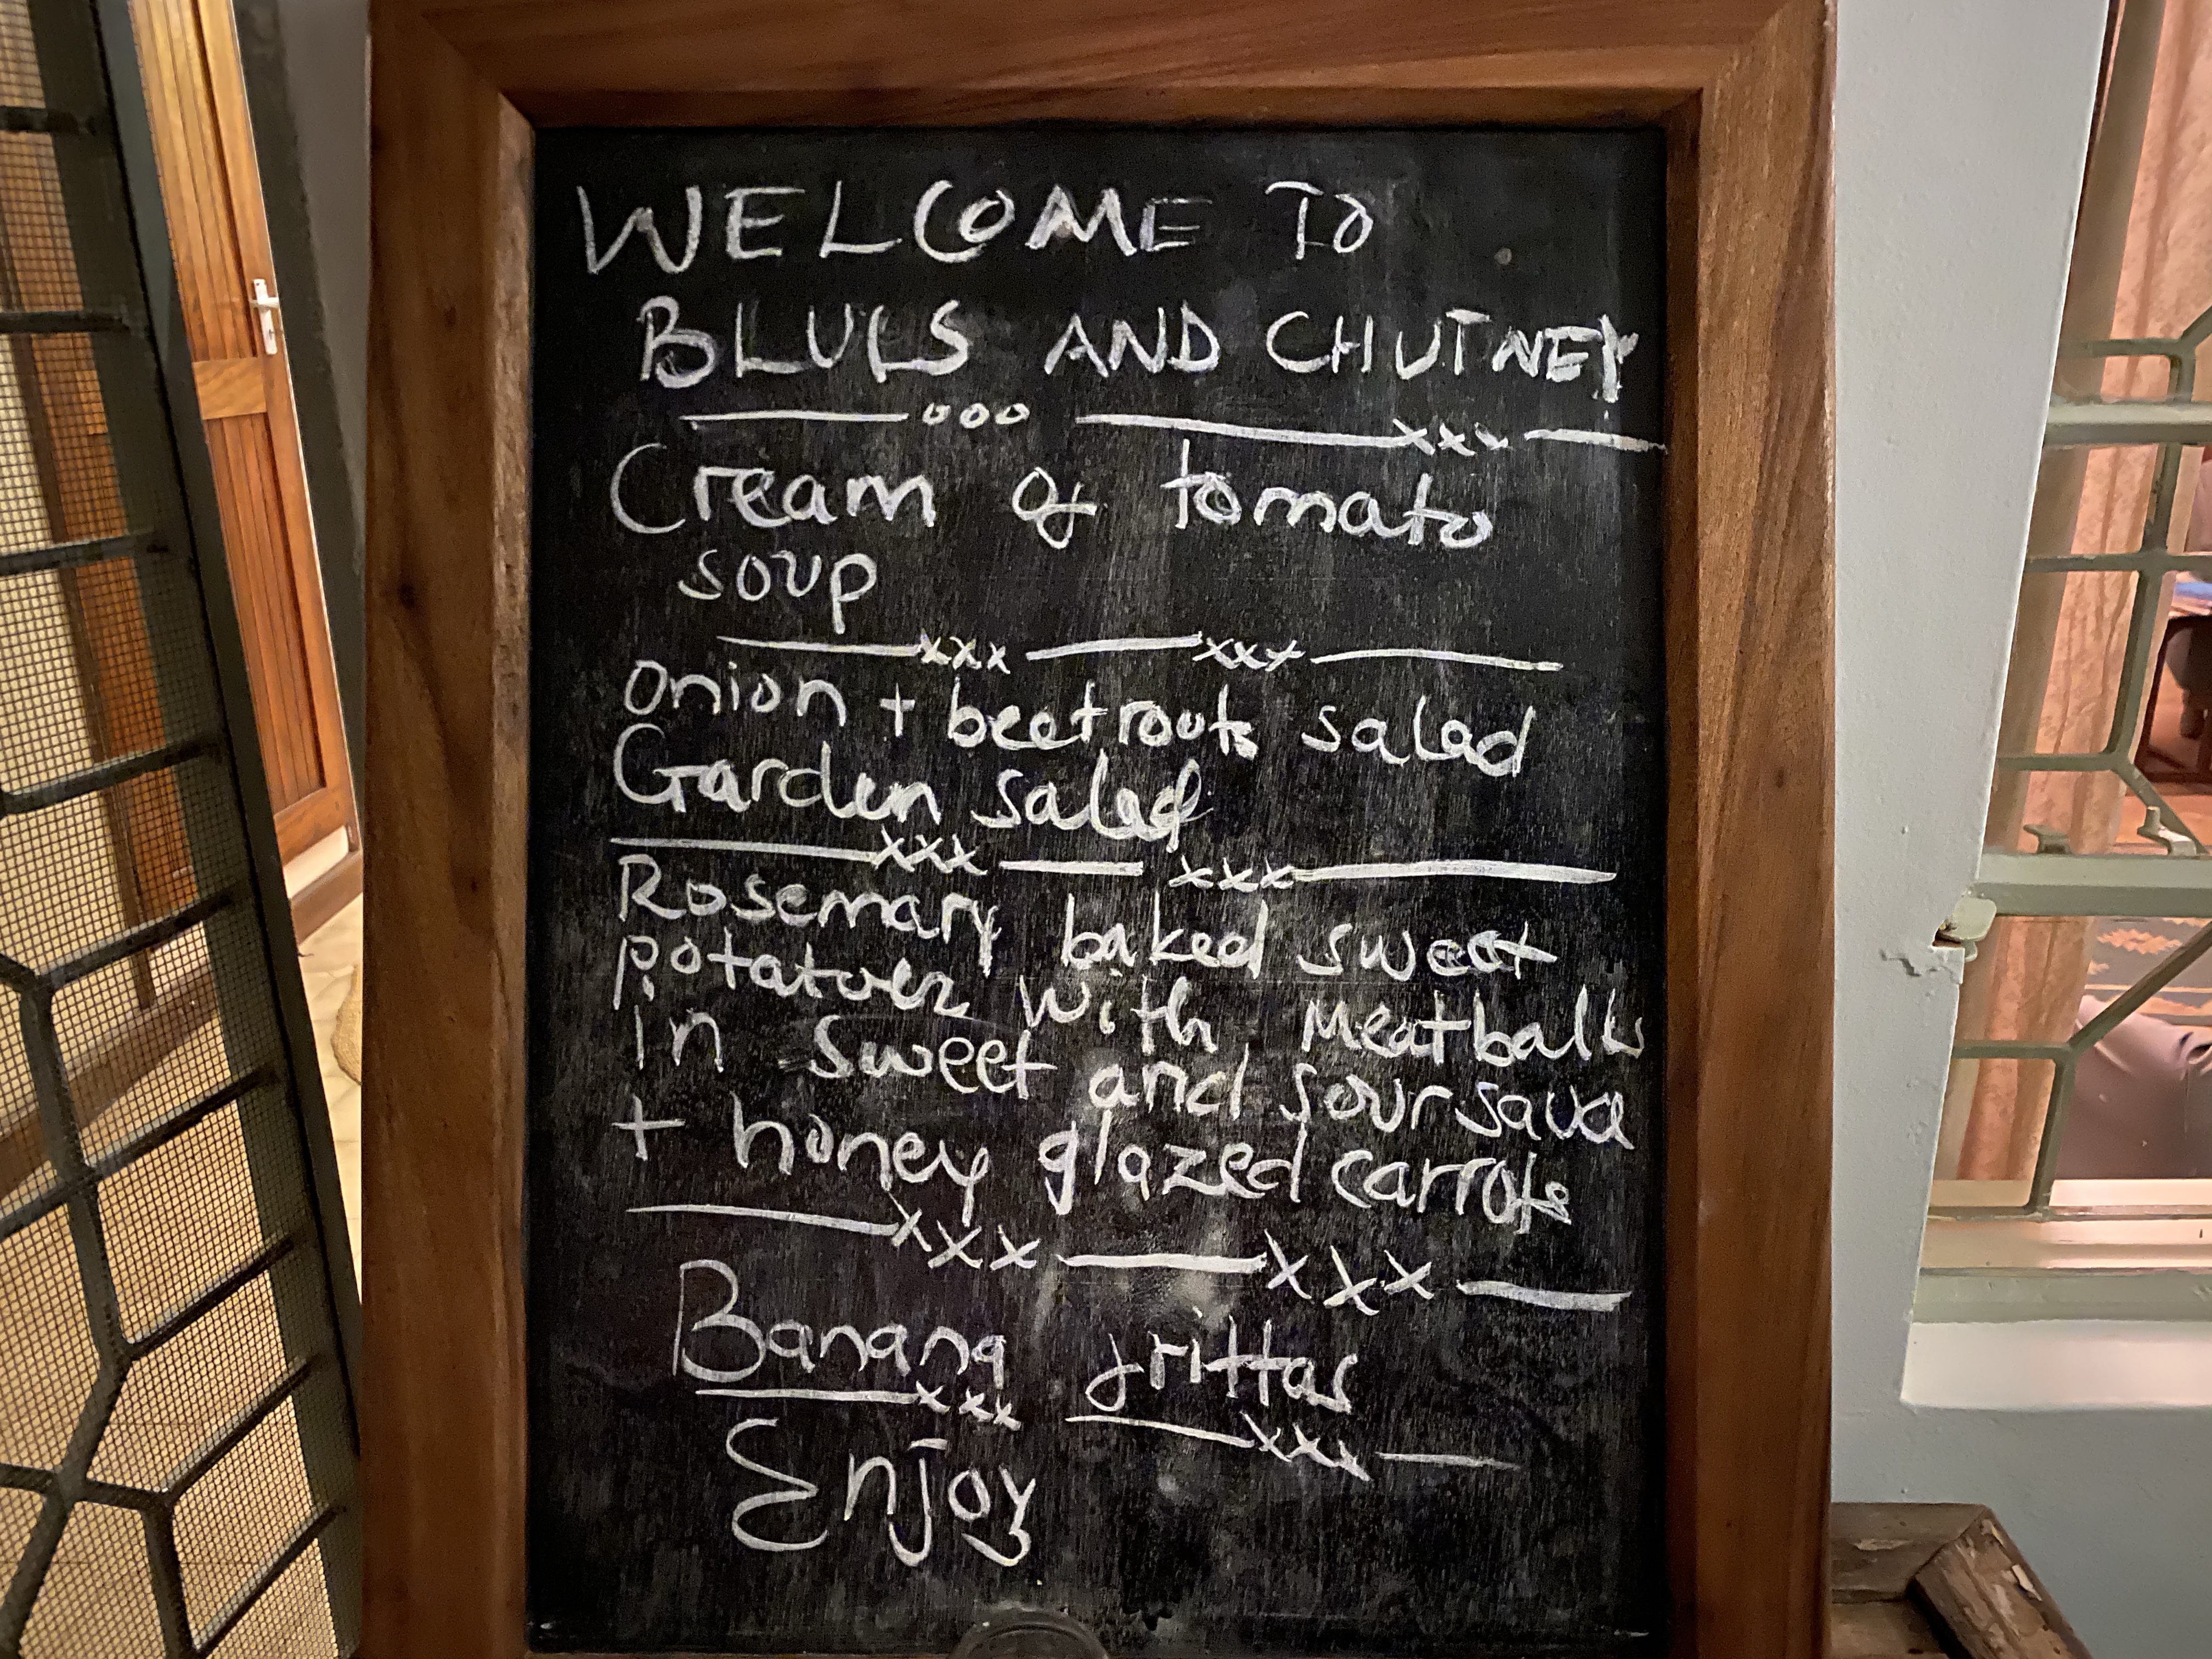 WELCOME TO
BLUES AND CHUTNEY
Cream of tomato
soup
onion + beetroots salad
Garden salad
Rosemary baked sweet
potatoes with Meatballs
in sweet and sour sauce
+ honey glazed carrots
Banana frittas
Enjoy